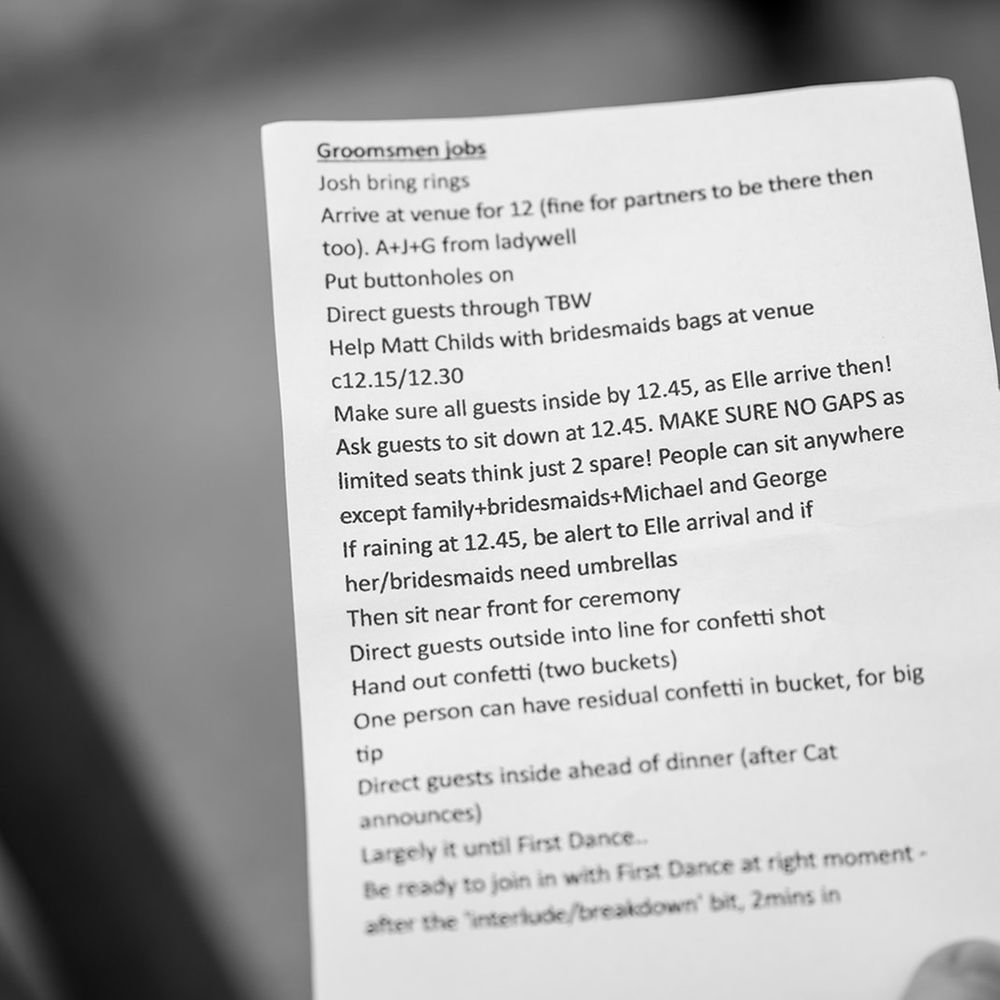 Groomsmen jobs
Josh bring rings
Arrive at venue for 12 (fine for partners to be there then
too). A+J+G from ladywell
Put buttonholes on
Direct guests through TBW
Help Matt Childs with bridesmaids bags at venue
c12.15/12.30
Make sure all guests inside by 12.45, as Elle arrive then!
Ask guests to sit down at 12.45. MAKE SURE NO GAPS as
limited seats think just 2 spare! People can sit anywhere
except family+bridesmaids+Michael and George
If raining at 12.45, be alert to Elle arrival and if
her/bridesmaids need umbrellas
Then sit near front for ceremony
Direct guests outside into line for confetti shot
Hand out confetti (two buckets)
One person can have residual confetti in bucket, for big
tip
Direct guests inside ahead of dinner (after Cat
announces)
Largely it until First Dance..
Be ready to join in with First Dance at right moment -
after the 'interlude/breakdown' bit, 2mins in